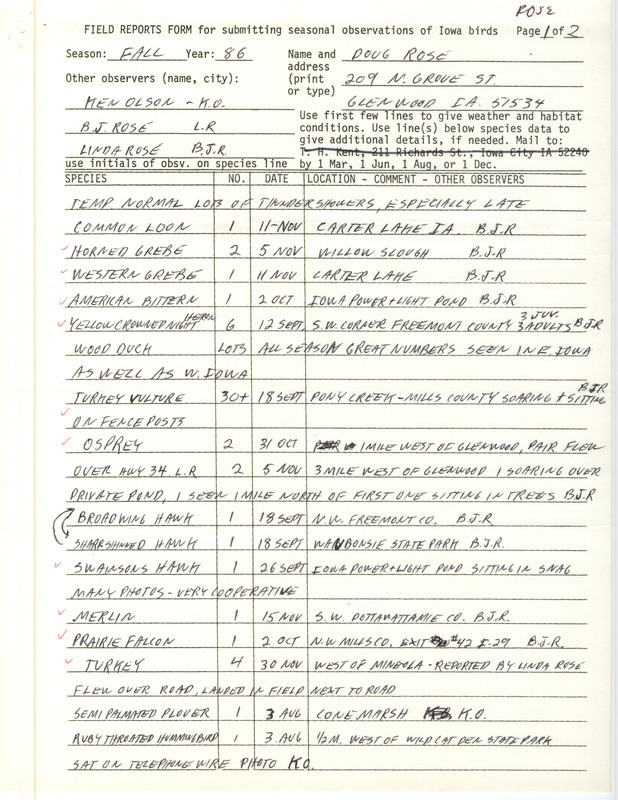 ROSE
FIELD REPORTS FORM for submitting seasonal observations of Iowa birds Page 1 of 2
Season: FALL Year: 86 Name and DOUG ROSE
address
Other observers (name, city): (print 209 N. GROVE ST.
or type)
KEN OLSON - K.O. GLENWOOD IA. 51534
Use first few lines to give weather and habitat
B.J. ROSE L.R conditions. Use line(s) below species data to
give additional details, if needed. Mail to:
LINDA ROSE B.J.R T. H. Kent, 211 Richards St., Iowa City IA 52240
use initials of obsv. on species line by 1 Mar, 1 Jun, 1 Aug, or 1 Dec.
SPECIES NO. DATE LOCATION - COMMENT - OTHER OBSERVERS
TEMP NORMAL LOTS OF THUNDERSHOWERS, ESPECIALLY LATE
COMMON LOON 1 11-NOV CARTER LAKE IA. B.J.R
HORNED GREBE 2 5 NOV WILLOW SLOUGH B.J.R
WESTERN GREBE 1 11 NOV CARTER LAKE B.J.R
AMERICAN BITTERN 1 2 OCT IOWA POWER + LIGHT POND B.J.R
YELLOW CROWNED NIGHT HERON 6 12 SEPT. S.W. CORNER FREEMONT COUNTY 3 JUV. 3 ADULTS B.J.R
WOOD DUCK LOTS ALL SEASON GREAT NUMBERS SEEN IN E. IOWA
AS WELL AS W. IOWA
TURKEY VULTURE 30+ 18 SEPT PONY CREEK - MILLS COUNTY SOARING + SITTING B.J.R
ON FENCE POSTS
OSPREY 2 31 OCT 1 MILE WEST OF GLENWOOD, PAIR FLEW
OVER HWY 34 L.R 2 5 NOV 3 MILE WEST OF GLENWOOD 1 SOARING OVER
PRIVATE POND, 1 SEEN 1 MILE NORTH OF FIRST ONE SITTING IN TREES B.J.R
BROADWING HAWK 1 18 SEPT N.W. FREEMONT CO. B.J.R
SHARPSHINNED HAWK 1 18 SEPT WAUBONSIE STATE PARK B.J.R.
SWAINSONS HAWK 1 26 SEPT IOWA POWER + LIGHT POND SITTING IN SNAG
MANY PHOTOS - VERY COOPERATIVE
MERLIN 1 15 NOV S.W. POTTAWATTAMIE CO. B.J.R.
PRAIRIE FALCON 1 2 OCT N.W MILLS CO. EXIT #42 I-29 B.J.R.
TURKEY 4 30 NOV WEST OF MINEOLA - REPORTED BY LINDA ROSE
FLEW OVER ROAD, LANDED IN FIELD NEXT TO ROAD
SEMI PALMATED PLOVER 1 3 AUG CONE MARSH K.O.
RUBY THROATED HUMMINGBIRD 1 3. AUG 1/2 M. WEST OF WILDCAT DEN STATE PARK
SAT ON TELEPHONE WIRE PHOTO K.O.